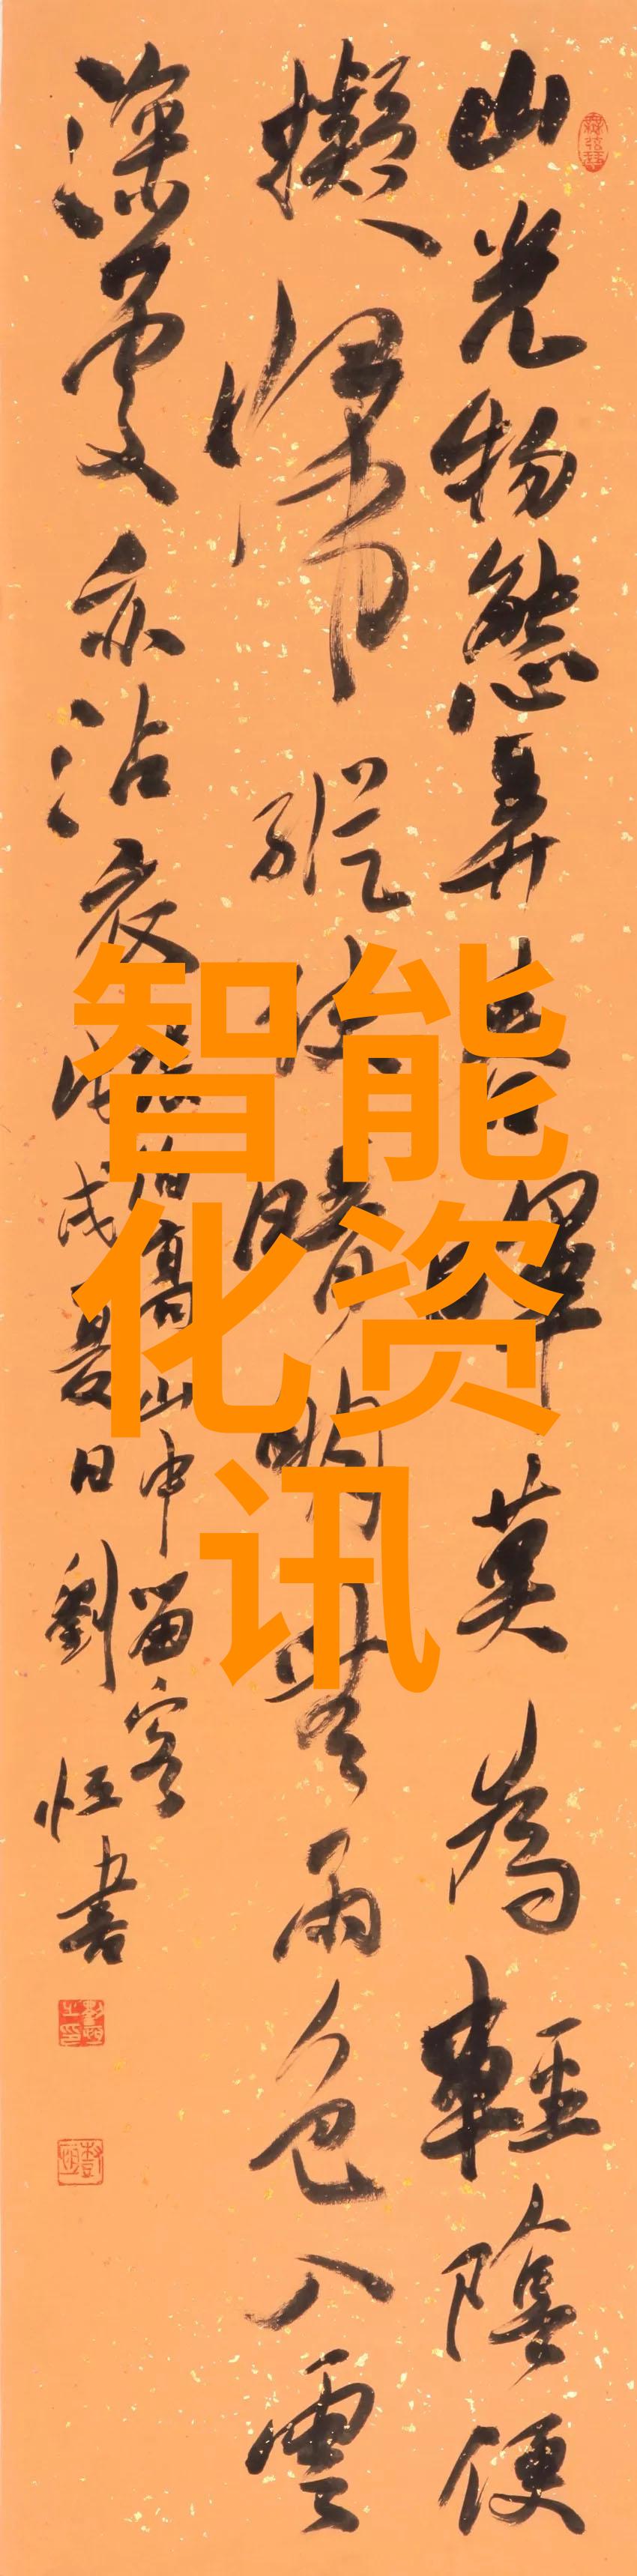 山光物態弄春暉莫為輕陰便
擬歸縱使晴明無雨色入雲
深處亦沾衣
張伯高山中留客
戊夏日劉恒書
智能
化资
讯